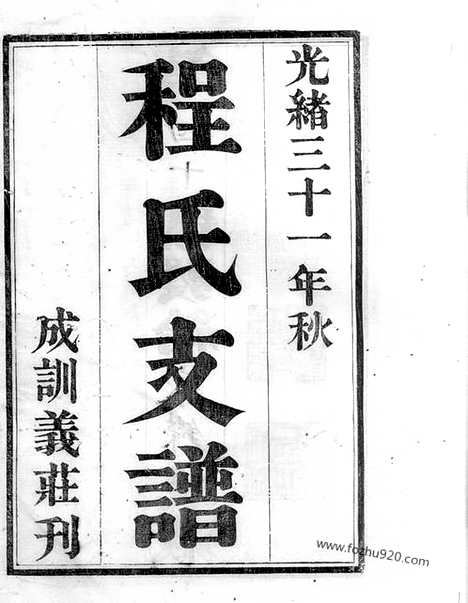 光緒三十一年秋
程氏支譜
成訓義莊刊
www.fozhu920.com